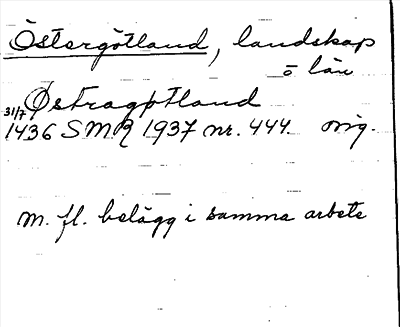 Östergötland, landskap
o län
Østragøtland
31/7 1436 SMR 1937 nr. 444. orig.
m. fl. belägg i samma arbete